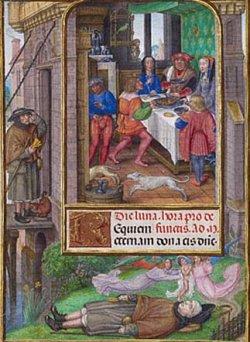 Die luna. hora pro de
REquiem functis. Ad M.
eternam dona eis dñe